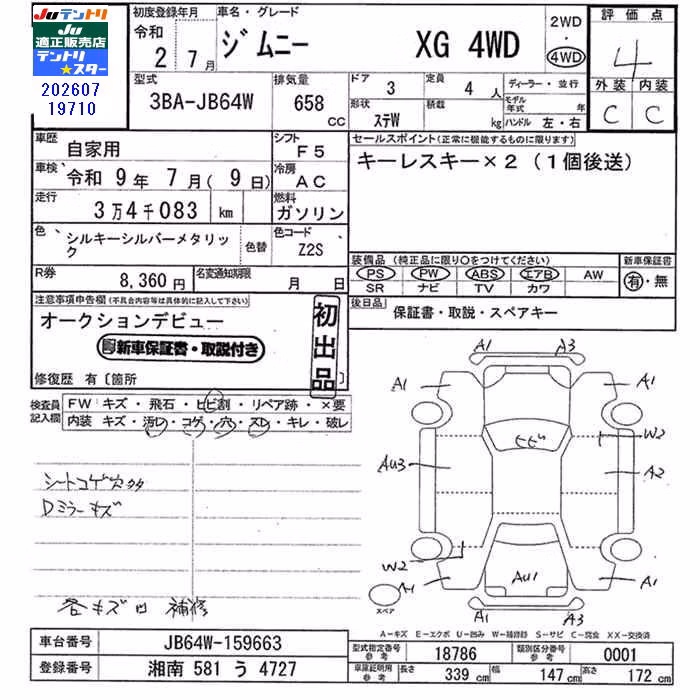 JU テントリ
JU
適正販売店
テントリ
★スター
202607
19710
初度登録年月
令和
2年 7月
車名・グレード
ジムニー XG 4WD
2WD
・
4WD
評価点
4
外装 内装
C C
型式
3BA-JB64W
排気量
658 CC
ドア 3
定員 4人
ディーラー・並行
形状 ステW
積載 kg
モデル年式 年
ハンドル 左・右
車歴
自家用
シフト
F5
車検
令和 9年 7月( 9日)
冷房
AC
走行
3万4千083 km
燃料
ガソリン
色
シルキーシルバーメタリック
色替
色コード
Z2S
R券
8,360円
名変通知期限
月 日
セールスポイント(正常に機能するものに限ります)
キーレスキー×2(1個後送)
装備品(純正品に限り○をつけてください)
PS PW ABS エアB AW
SR ナビ TV カワ
新車保証書
有・無
後日品
保証書・取説・スペアキー
注意事項申告欄(不具合内容等は具体的に記入して下さい)
オークションデビュー
新車保証書・取説付き
初出品
修復歴 有〔箇所
検査員記入欄
FW キズ・飛石・ヒビ割・リペア跡・×要
内装 キズ・汚レ・コゲ・穴・スレ・キレ・破レ
シートコゲ穴多
Dミラーキズ
各キズ凹 補修
A1 A3
A1 A1
W2
ヒビ
Au3 A2
W2
Au1
A1 A1
スペア
A1 A3
A-キズ E-エクボ U-凹み W-補修跡 S-サビ C-腐食 XX-交換済
車台番号
JB64W-159663
登録番号
湘南 581 う 4727
型式指定番号
参考
18786
類別区分番号
参考
0001
車庫証明用
参考
長さ 339 cm
幅 147 cm
高さ 172 cm